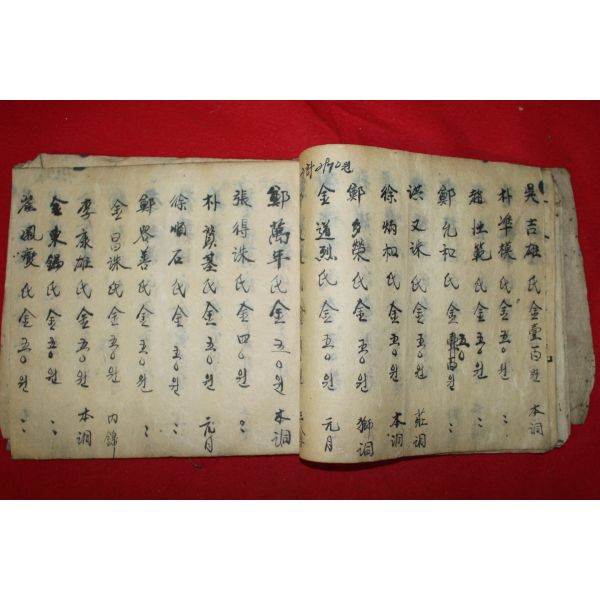 吳吉雄氏 金壹百원 本洞
朴準模氏 金五〇원 〻
趙性範氏 金五〇원 〻
鄭允和氏 金五〇원 〻
洪又洙氏 金五〇원 莊洞
徐炳和氏 金五〇원 本洞
鄭多榮氏 金五〇원 獅洞
金道烈氏 金五〇원 元月
鄭萬年氏 金五〇원 本洞
張得洙氏 金四〇원 〻
朴贊基氏 金五〇원 元月
徐順石氏 金五〇원 〻
鄭容善氏 金五〇원 〻
金昌洙氏 金五〇원 內錦
李康雄氏 金五〇원 本洞
金東錫氏 金五〇원 〻
鳳燮氏 金五〇원 〻